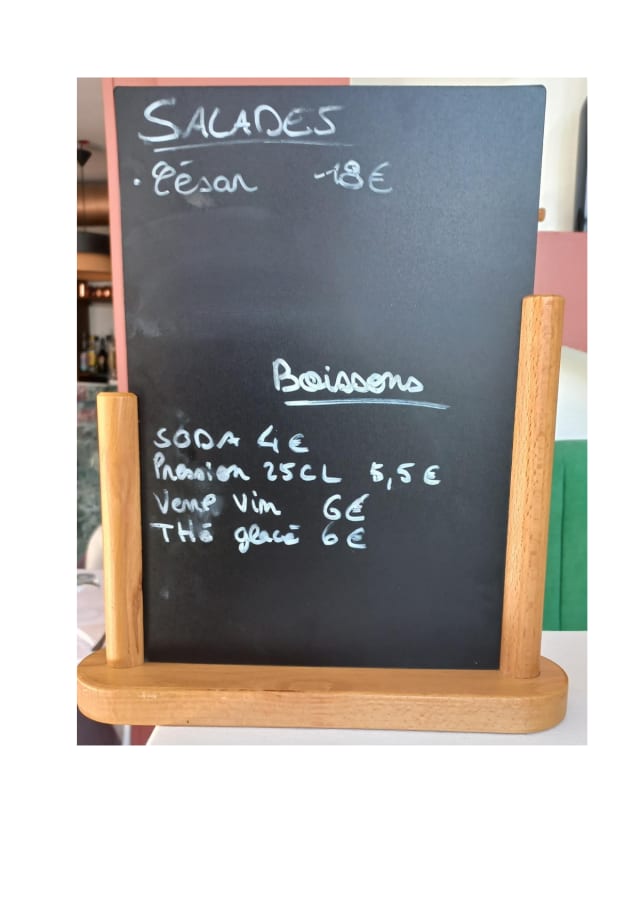 SALADES
· César 18€
Boissons
SODA 4€
Pression 25CL 5,5€
Verre Vin 6€
THé glacé 6€